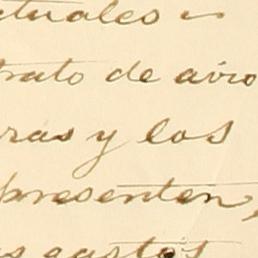 ctuales
trato de avio
ras y los
presenten,
gastos